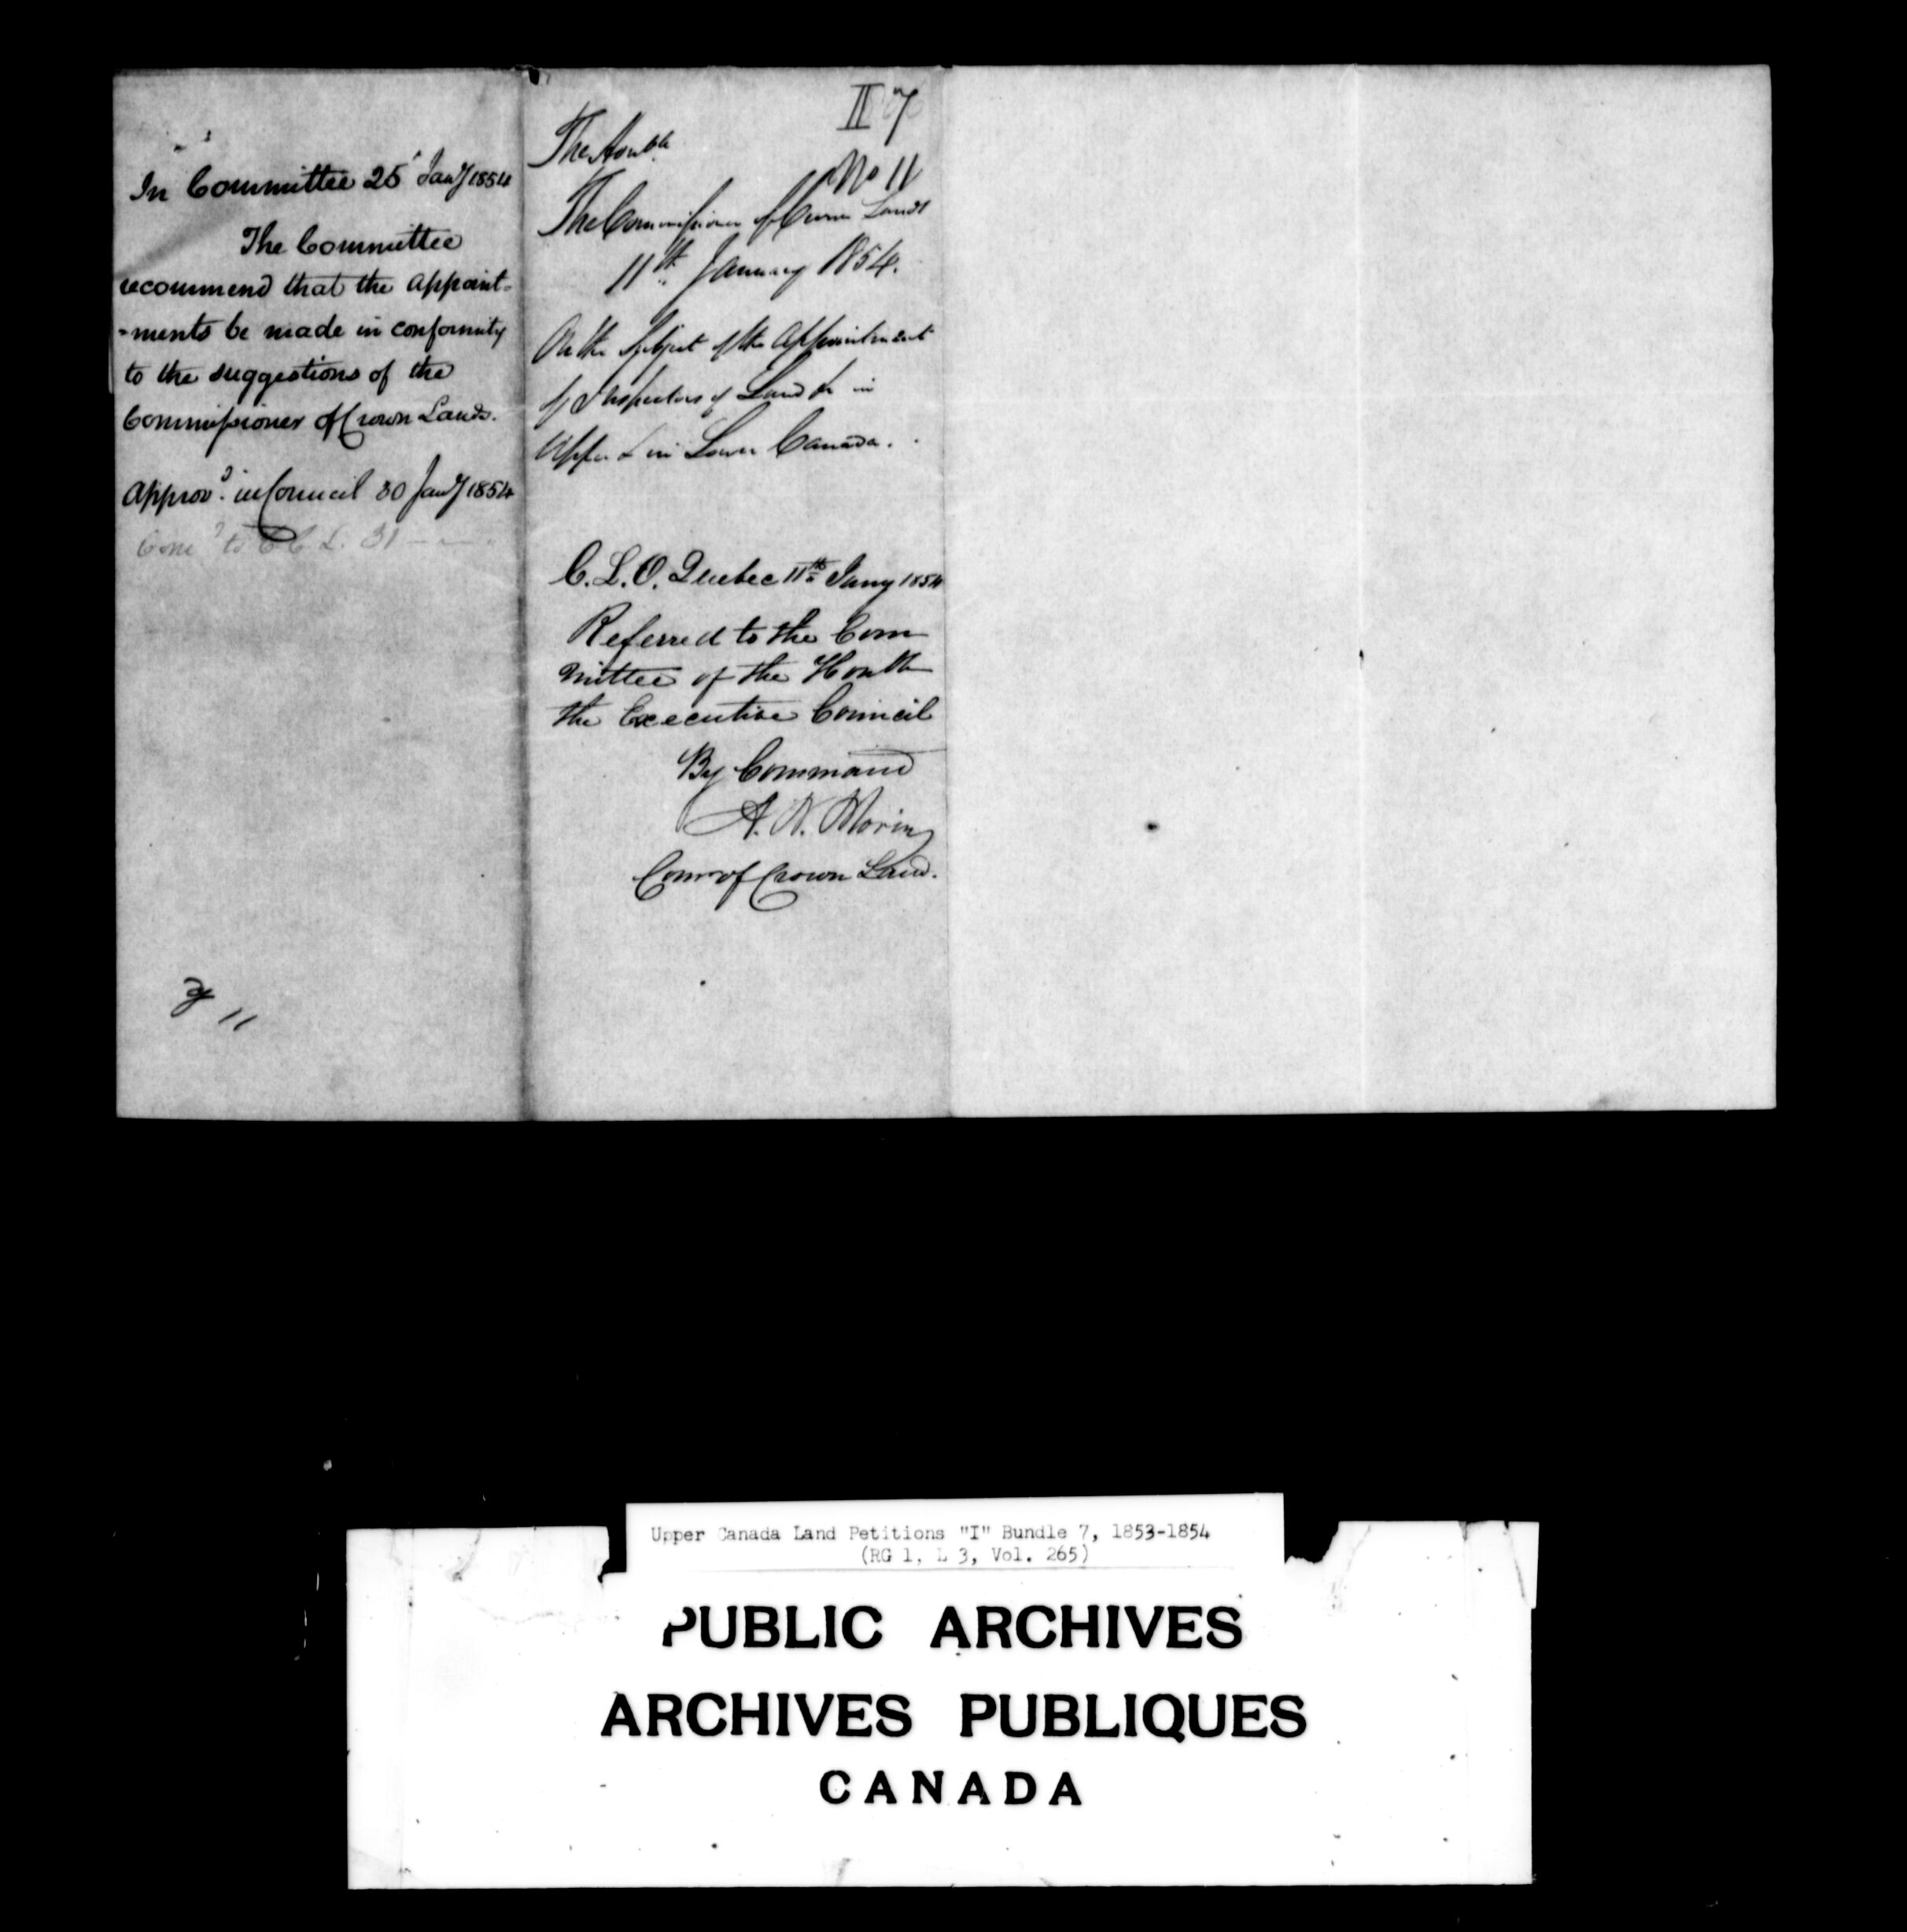 In Committee 25 Jany 1854
The Committee
recommend that the appoint-
-ments be made in conformity
to the suggestions of the
Commissioner of Crown Lands.
Approvd. in Council 30 Jany 1854
Comd to C.C.L. 31
11
I 7
The Honble
No 11
The Commissioner of Crown Lands
11th January 1854.
On the Subject of the Appointment
of Inspectors of Land &c in
Upper & in Lower Canada.
C. L. O. Quebec 11th Jany 1854
Referred to the Com
mittee of the Honble
the Executive Council
By Command
A. N. Morin
Comr of Crown Land.
Upper Canada Land Petitions "I" Bundle 7, 1853-1854
(RG 1, L 3, Vol. 265)
PUBLIC ARCHIVES
ARCHIVES PUBLIQUES
CANADA